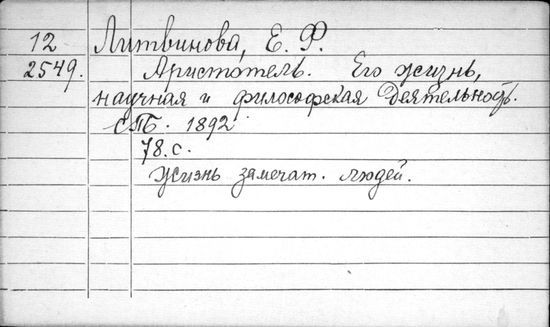 12 Литвинова, Е. Ф.
2549. Аристотель. Его жизнь,
научная и философская деятельность.
СПБ. 1892
78.с.
Жизнь замечат. людей.